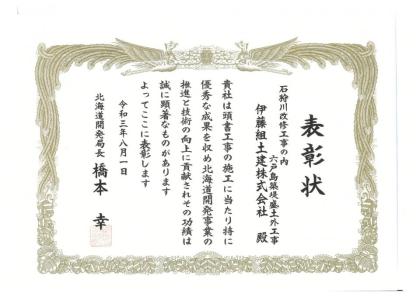 表彰状
石狩川改修工事の内
六戸島築堤盛土外工事
伊藤組土建株式会社 殿
貴社は頭書工事の施工に当たり特に
優秀な成果を収め北海道開発事業の
推進と技術の向上に貢献されその功績は
誠に顕著なものがあります
よってここに表彰します
令和三年八月一日
北海道開発局長 橋本 幸